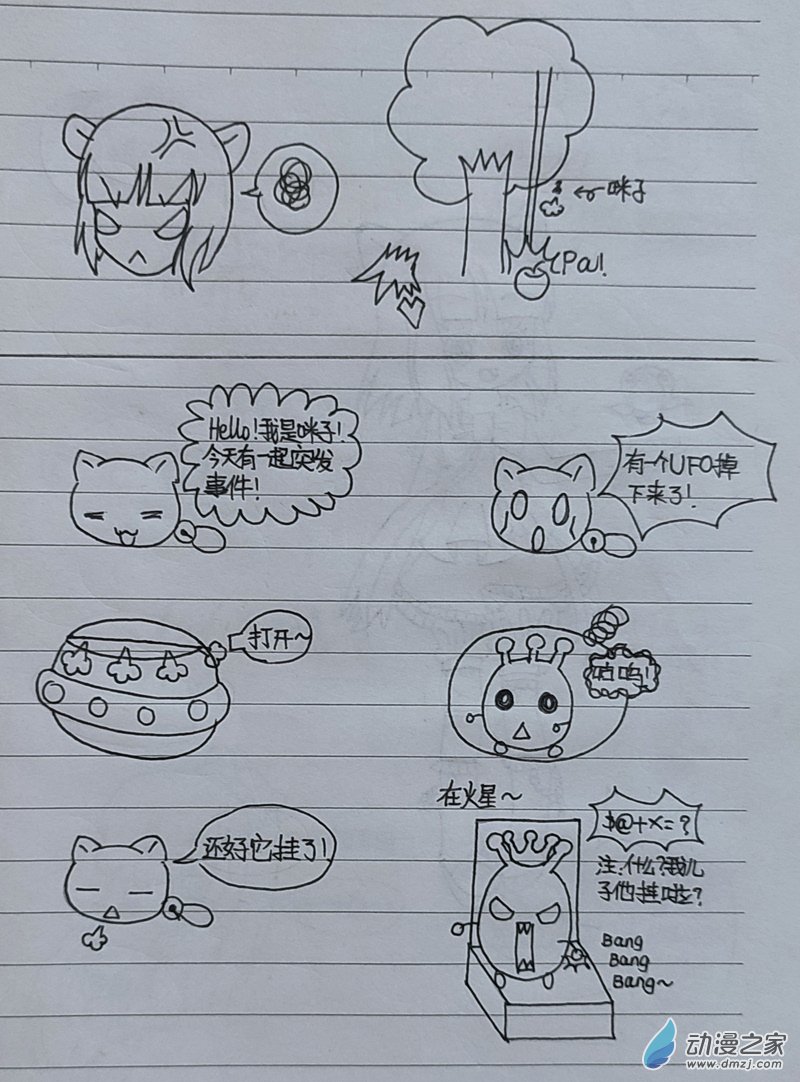 ←咪子
Pa!
Hello!我是咪子!
今天有一起突发
事件!
有一个UFO掉
下来了!
打开~
呜!
在火星~
$@+×=?
还好它挂了!
注:什么?我儿
子他挂啦?
Bang
Bang
Bang~
动漫之家
www.dmzj.com